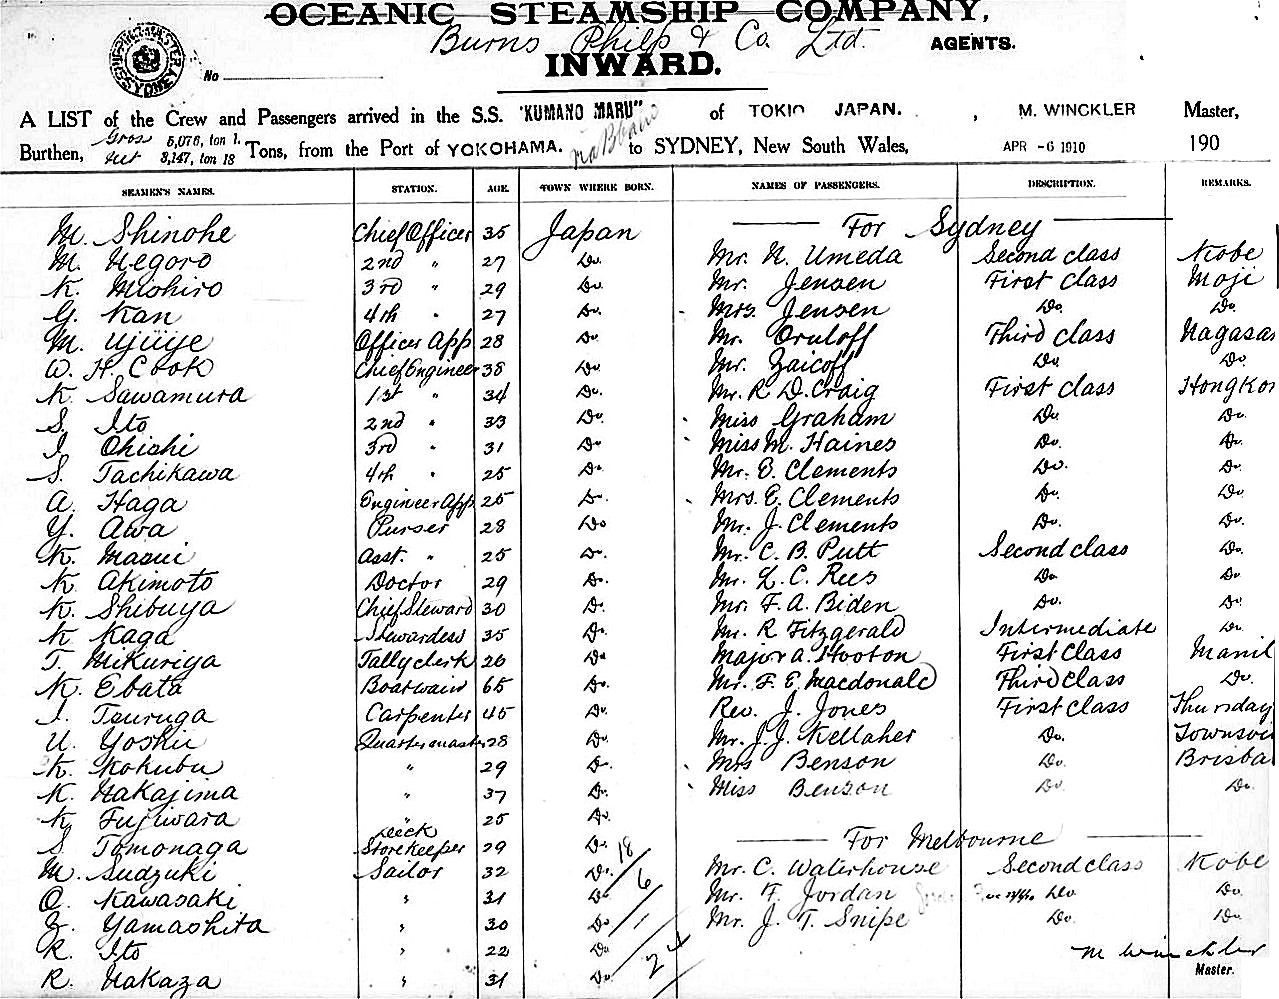 OCEANIC STEAMSHIP COMPANY,
Burns Philp & Co. Ltd. AGENTS.
INWARD.
No
A LIST of the Crew and Passengers arrived in the S.S. "KUMANO MARU" of TOKIO JAPAN. , M. WINCKLER Master,
Burthen, Gross 5,076, ton 1. Nett 3,147, ton 18 Tons, from the Port of YOKOHAMA. via to SYDNEY, New South Wales, APR -6 1910 190
SEAMEN'S NAMES. STATION. AGE. TOWN WHERE BORN. NAMES OF PASSENGERS. DESCRIPTION. REMARKS.
M. Shinohe Chief Officer 35 Japan For Sydney
M. Negoro 2nd " 27 Do. Mr. N. Umeda Second class Kobe
K. Mishiro 3rd " 29 Do. Mr. Jensen First class Moji
G. Kan 4th " 27 Do. Mrs. Jensen Do. Do.
M. Ujiiye Officer App 28 Do. Mr. Oruloff Third class Nagasa
W. H. Cook Chief Engineer 38 Do. Mr. Zaicoff Do. Do.
K. Sawamura 1st " 34 Do. Mr. R. D. Craig First class Hongko
S. Ito 2nd " 33 Do. Miss Graham Do. Do.
I. Ohishi 3rd " 31 Do. Miss M. Haines Do. Do.
S. Tachikawa 4th " 25 Do. Mr. E. Clements Do. Do.
A. Haga Engineer App 25 Do. Mrs. E. Clements Do. Do.
Y. Awa Purser 28 Do. Mr. J. Clements Do. Do.
K. Masui Asst. " 25 Do. Mr. C. B. Putt Second class Do.
K. Akimoto Doctor 29 Do. Mr. L. C. Rees Do. Do.
K. Shibuya Chief Steward 30 Do. Mr. F. A. Biden Do. Do.
K. Kaga Stewardess 35 Do. Mr. R. Fitzgerald Intermediate Do.
T. Mikuriya Tally clerk 26 Do. Major A. Hooton First class Manil
K. Ebata Boatswain 65 Do. Mr. F. E. Macdonald Third class Do.
I. Tsuruga Carpenter 45 Do. Rev. J. Jones First class Thursday
U. Yoshii Quartermaster 28 Do. Mr. J. J. Kellaher Do. Townsv
K. Kokubu " 29 Do. Mrs Benson Do. Brisba
K. Nakajima " 37 Do. Miss Benson Do. Do.
K. Fujiwara " 25 Do.
S. Tomonaga Deck Storekeeper 29 Do. 18 For Melbourne
M. Sudzuki Sailor 32 Do. 6 Mr. C. Waterhouse Second class Kobe
O. Kawasaki " 31 Do. Mr. F. Jordan Do. Do.
Z. Yamashita " 30 Do. 1 Mr. J. T. Snipe Do. Do.
R. Ito " 22 Do. 24 M Winckler
R. Nakaza " 31 Do. Master.